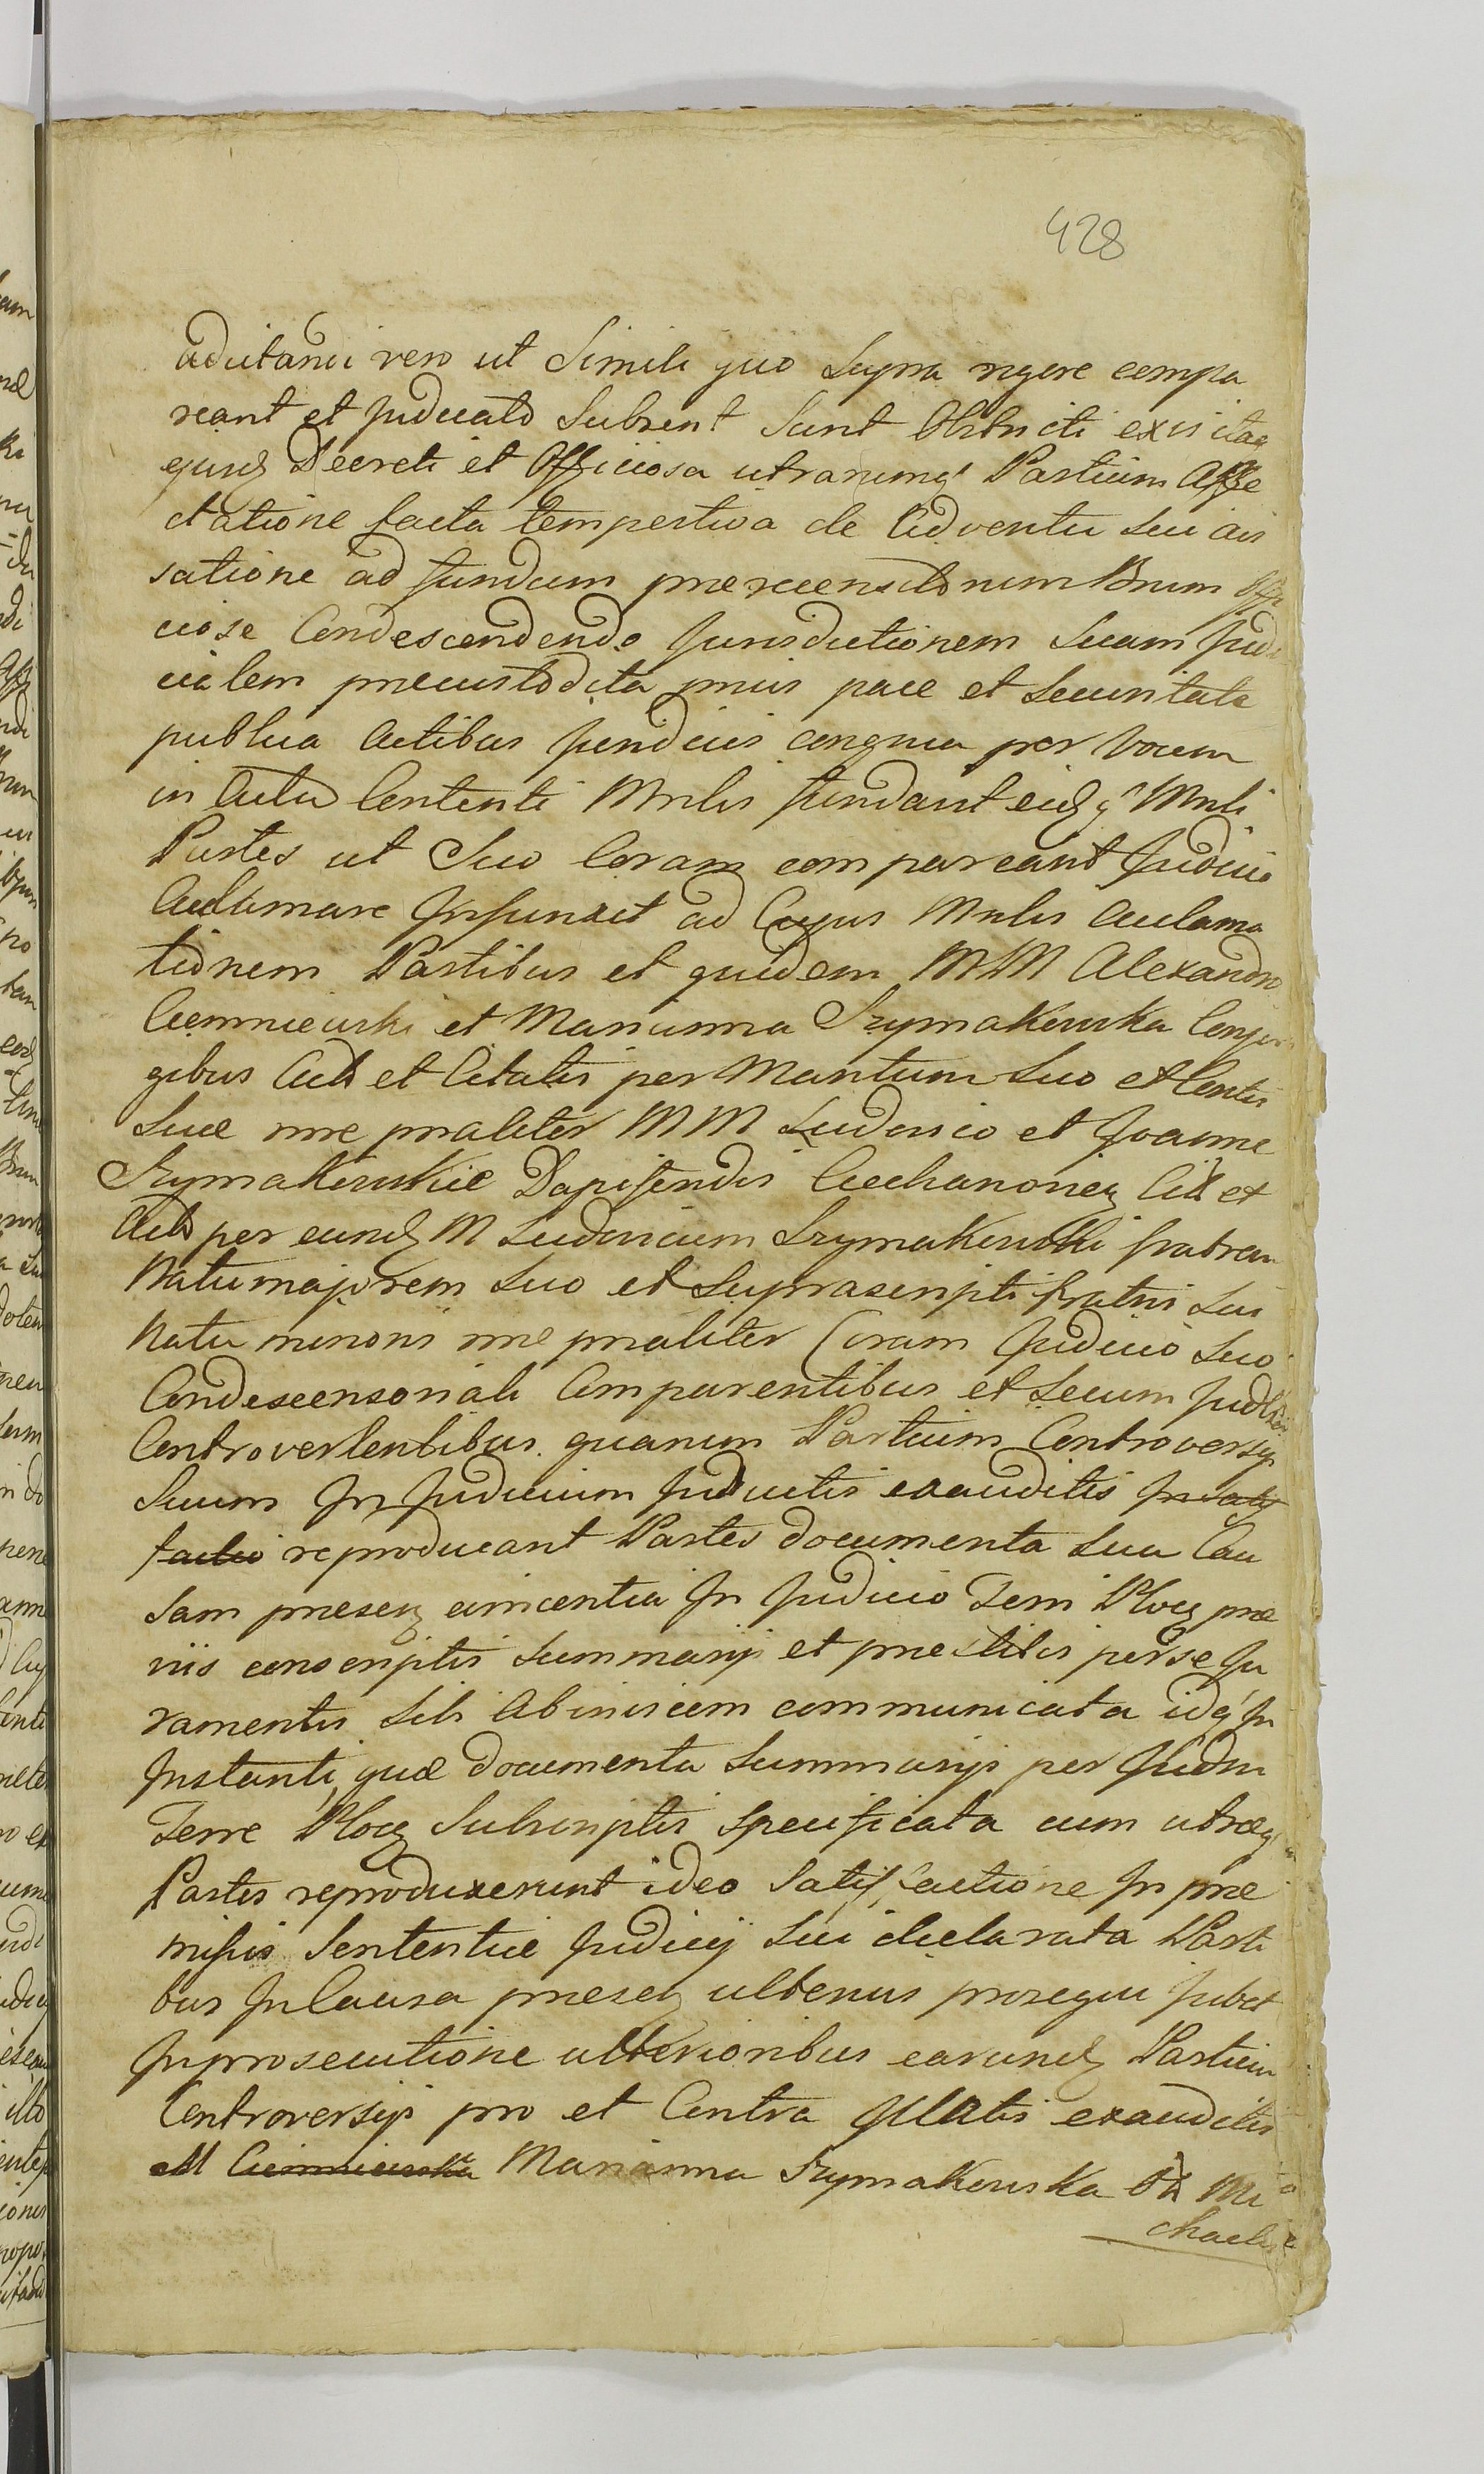 428
adcitandi vero ut Simili quo Supra rigore compa
reant et Judicato Subsint Sunt Obstricti ex vi itaq
ejusd Decreti et Officiosa utrarumq Partium Affe
ctatione facta tempestiva de Adventu Sui avi
satione ad fundum præreensitorum Bnrum Offi
ciose Condescendendo Jurisdictionem Suam Judi
cialem præcustodita prius pace et Securitate
publica Actibus Juridicis congrua per Vocem
in Actu Contenti Mnlis fundavit eidq Mnli
Partes ut Suo Coram compareant Judicio
Acclamare Injunxit ad Cujus Mnlis Acclama
tionem Partibus et quidem MM Alexandro
Ciemniewski et Marianna Szymakowska Conju
gibus Act et Citatis per Maritum Suo et Contis
Suæ nne prnaliter MM Ludovico et Joanne
Szymakowskie Dapiferidis Ciechanovien Cit et
Act per eund M Ludovicum Szymakowski fratrem
Natu majorem Suo et Suprascripti fratris Sui
Natu minoris nne prnaliter Coram Judicio Suo
Condescensoriali Comparentibus et Secum Judlr
Controvertentibus quarum Partium Controversys
Suum In Judicium Inductis exauditis In satis
factio reproducant Partes documenta Sua Cau
sam præsen evincentia In Judicio Terri Plocen præ
viis conscriptis Summarijs et præstitis per se Ju
ramentis Sibi Abinvicem communicata idq In
Instanti quæ documenta Summarijs per Judm
Terre Plocen Subscriptis Specificata cum utræq
Partes reproduxerunt ideo Satisfactione In præ
missis Sententiæ Judicij Sui declarata Parti
bus In Causa præsen ulterius prosequi Jubet
In prosecutione ulterioribus earund Partium
Controversijs pro et Contra Illatis exauditis
M Ciemniewska Marianna Szymakowska Mi
chaelis